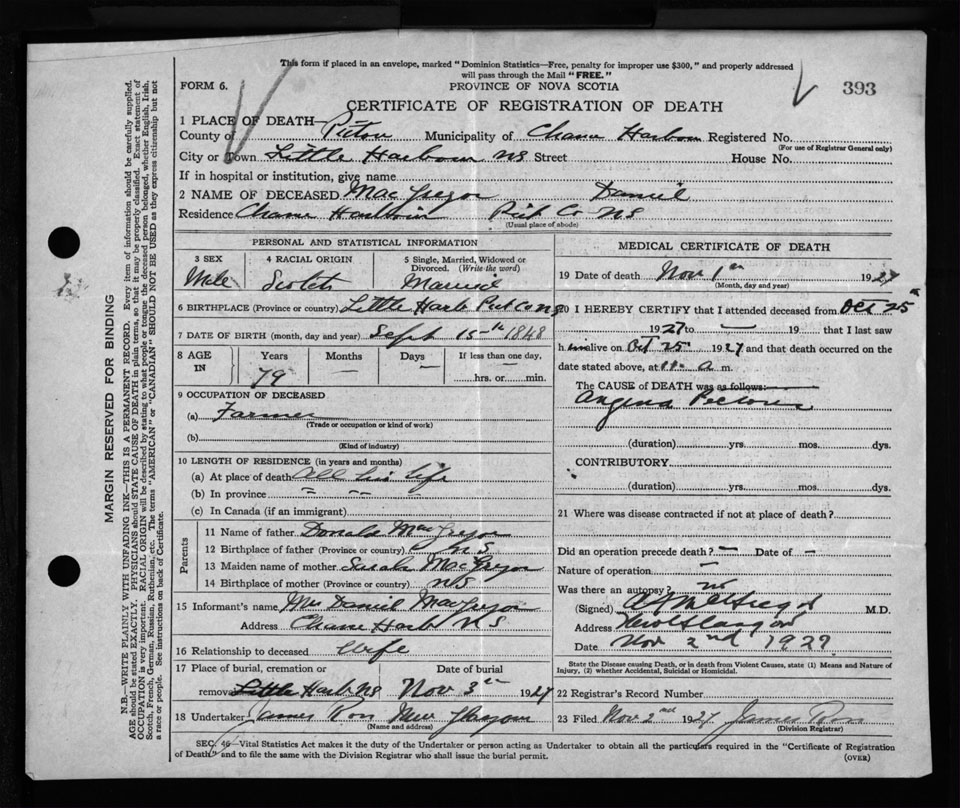 This form if placed in an envelope, marked "Dominion Statistics—Free, penalty for improper use $300," and properly addressed
will pass through the Mail "FREE."
FORM 6.
PROVINCE OF NOVA SCOTIA
393
CERTIFICATE OF REGISTRATION OF DEATH
1 PLACE OF DEATH—
County of Pictou Municipality of Chance Harbour Registered No.
(For use of Registrar General only)
City or Town Little Harbour NS Street House No.
If in hospital or institution, give name
2 NAME OF DECEASED MacGregor Daniel
Residence Chance Harbour Pict Co NS
(Usual place of abode)
PERSONAL AND STATISTICAL INFORMATION
3 SEX 4 RACIAL ORIGIN 5 Single, Married, Widowed or
Divorced. (Write the word)
Male Scotch Married
6 BIRTHPLACE (Province or country) Little Harb Pict Co NS
7 DATE OF BIRTH (month, day and year) Sept 15th 1848
8 AGE IN Years Months Days If less than one day.
79 — — hrs. or min.
9 OCCUPATION OF DECEASED
(a) Farmer
(Trade or occupation or kind of work)
(b)
(Kind of industry)
10 LENGTH OF RESIDENCE (in years and months)
(a) At place of death All his life
(b) In province
(c) In Canada (if an immigrant)
Parents
11 Name of father Donald MacGregor
12 Birthplace of father (Province or country) NS
13 Maiden name of mother Sarah MacGregor
14 Birthplace of mother (Province or country) NS
15 Informant's name Mrs Daniel MacGregor
Address Chance Harb NS
16 Relationship to deceased Wife
17 Place of burial, cremation or Date of burial
removal Little Harb NS Nov 3rd 1927
18 Undertaker James Ross New Glasgow
(Name and address)
MEDICAL CERTIFICATE OF DEATH
19 Date of death Nov 1st 1927
(Month, day and year)
20 I HEREBY CERTIFY that I attended deceased from Oct 25
1927 to — 19 that I last saw
h im alive on Oct 25 1927 and that death occurred on the
date stated above, at 11 a m.
The CAUSE of DEATH was as follows:
Angina Pectoris
(duration) yrs. mos. dys.
CONTRIBUTORY
(duration) yrs. mos. dys.
21 Where was disease contracted if not at place of death?
Did an operation precede death? — Date of —
Nature of operation —
Was there an autopsy? no
(Signed) M.D.
Address New Glasgow
Date Nov 2nd 1927
State the Disease causing Death, or in death from Violent Causes, state (1) Means and Nature of
Injury, (2) whether Accidental, Suicidal or Homicidal.
22 Registrar's Record Number
23 Filed Nov 2nd 1927 James Ross
(Division Registrar)
SEC. 46—Vital Statistics Act makes it the duty of the Undertaker or person acting as Undertaker to obtain all the particulars required in the "Certificate of Registration
of Death" and to file the same with the Division Registrar who shall issue the burial permit.
(OVER)
MARGIN RESERVED FOR BINDING
N.B.—WRITE PLAINLY WITH UNFADING INK—THIS IS A PERMANENT RECORD. Every item of information should be carefully supplied.
AGE should be stated EXACTLY. PHYSICIANS should STATE CAUSE OF DEATH in plain terms, so that it may be properly classified. Exact statement of
OCCUPATION is very important. RACIAL ORIGIN will be described by stating to what people or tongue the deceased person belonged, whether English, Irish,
Scotch, French, German, Russian, Ruthenian, etc. The terms "AMERICAN" or "CANADIAN" SHOULD NOT BE USED as they express citizenship but not
a race or people. See instructions on back of Certificate.